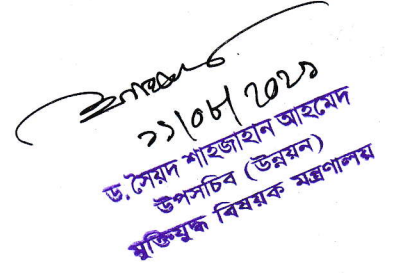 ১১/০৮/২০২১
ড. সৈয়দ শাহজাহান আহমেদ
উপসচিব (উন্নয়ন)
মুক্তিযুদ্ধ বিষয়ক মন্ত্রণালয়